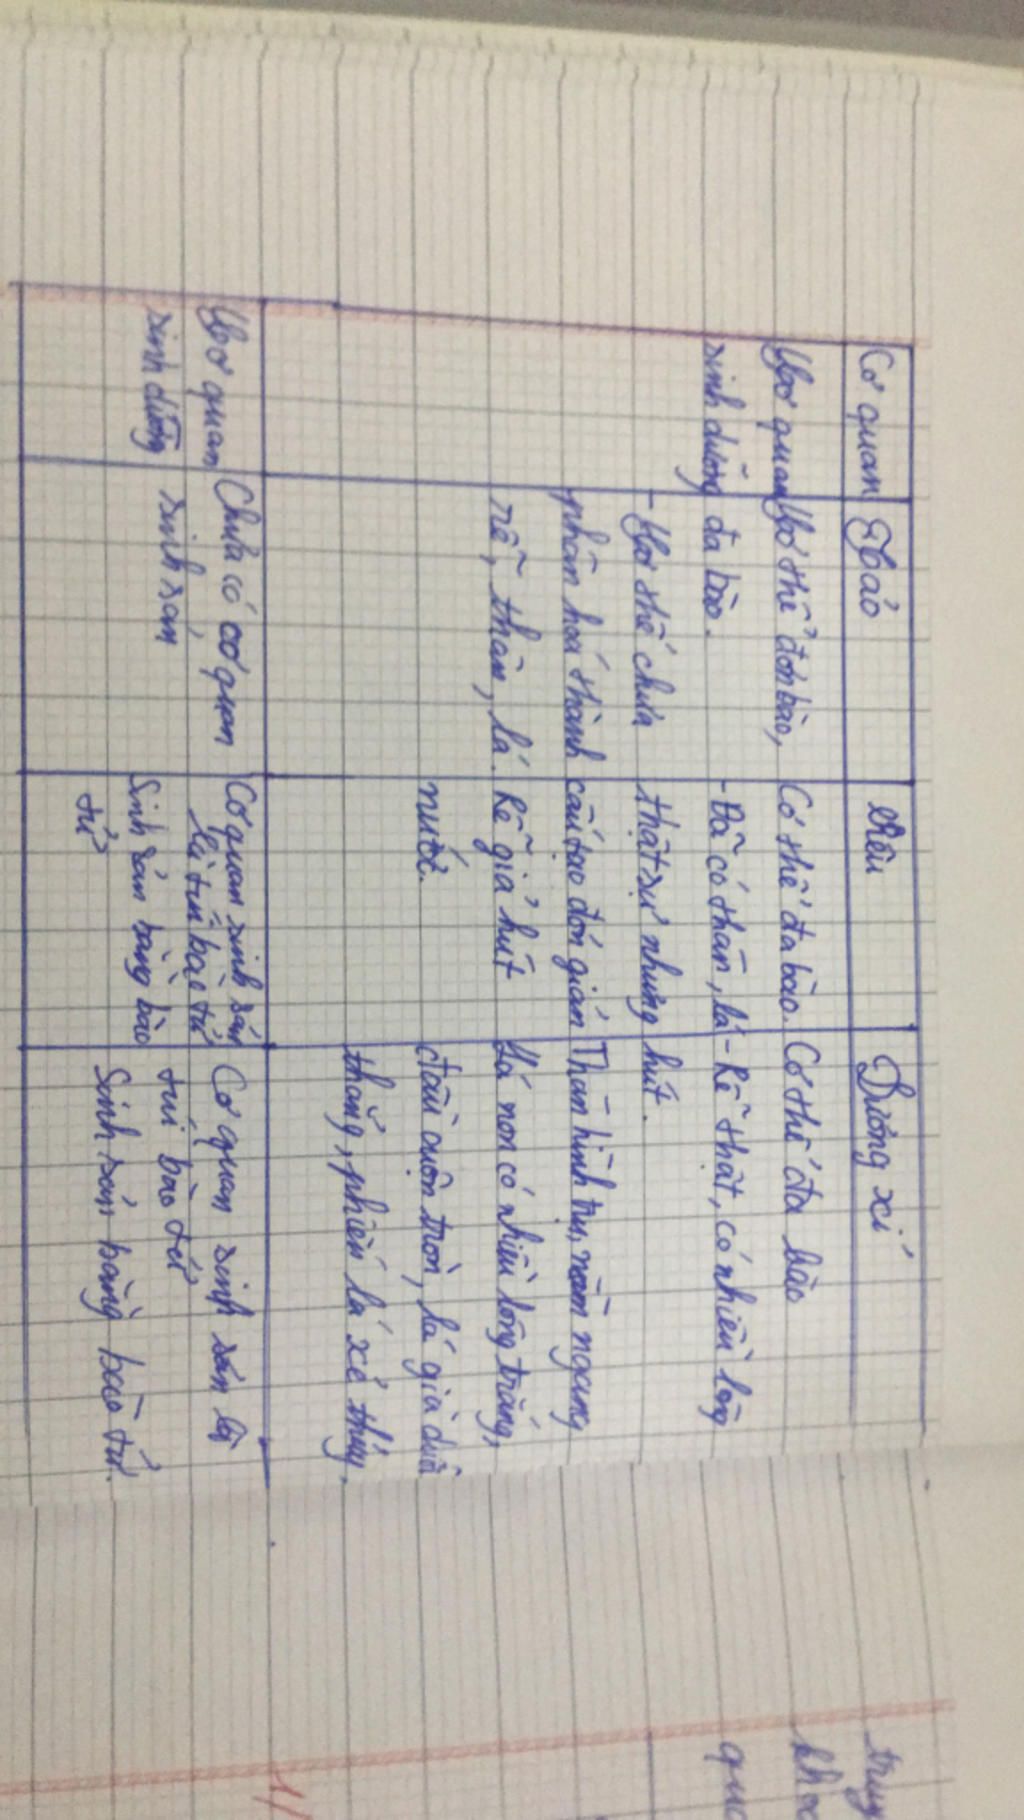 Cơ quan Tảo Rêu Dương xỉ
Cơ quan Cơ thể đơn bào, Cơ thể đa bào. Cơ thể đa bào
sinh dưỡng đa bào. - Đã có thân, lá - Rễ thật, có nhiều lông
- Cơ thể chưa thật sự nhưng hút.
phân hoá thành cấu tạo đơn giản Thân hình trụ, nằm ngang
rễ, thân, lá. Rễ giả hút Lá non có nhiều lông trắng,
nước. đầu cuộn tròn, lá già duỗi
thẳng, phiến lá xẻ thùy.
Cơ quan Chưa có cơ quan Cơ quan sinh sản Cơ quan sinh sản là
sinh dưỡng sinh sản là túi bào tử túi bào tử
Sinh sản bằng bào Sinh sản bằng bào tử.
tử
truy
kho
qua